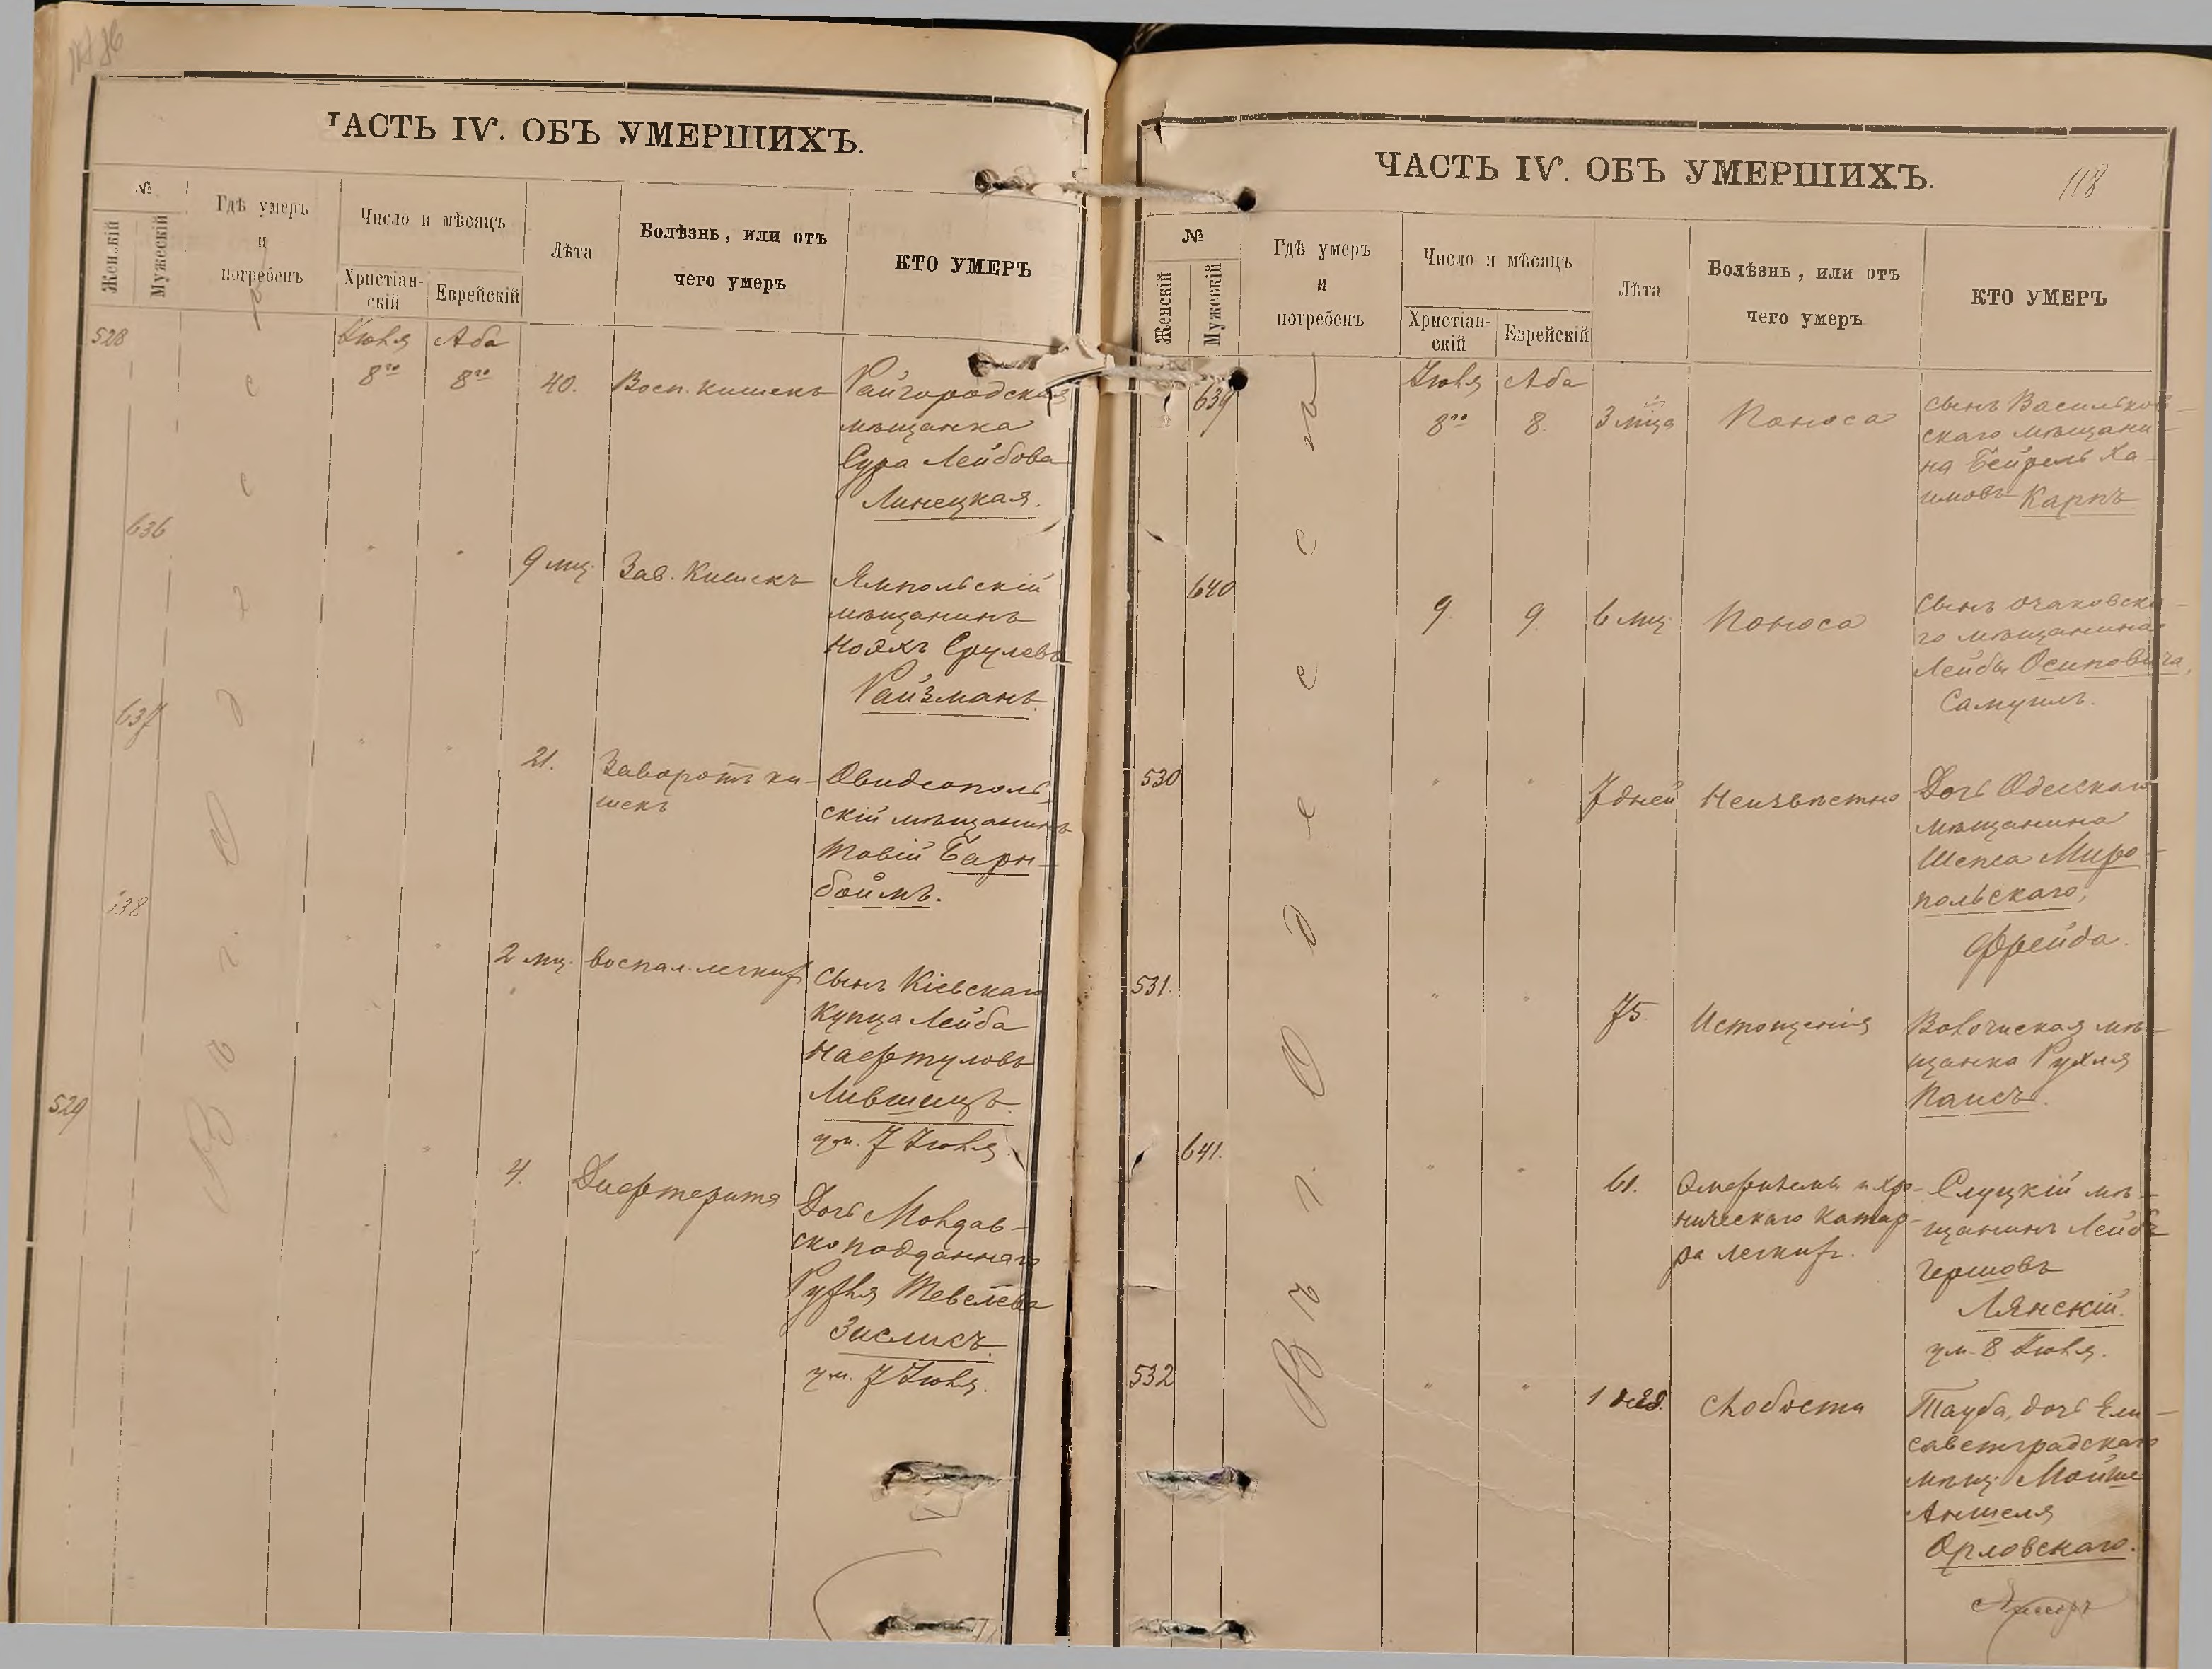 ЧАСТЬ IV. ОБЪ УМЕРШИХЪ.
№
Женскій
Мужескій
Гдѣ умеръ
и
погребенъ
Число и мѣсяцъ
Христіан-
скій
Еврейскій
Лѣта
Болѣзнь, или отъ
чего умеръ
КТО УМЕРЪ
Въ г. Одессѣ
528
Іюля
8го
Аба
8го
40.
Восп. кишекъ
Райгородская
мѣщанка
Сура Лейбова
Линецкая.
636
"
"
9 мц.
Зав. Кишекъ
Ямпольскій
мѣщанинъ
Ноэхъ Срулевъ
Райзманъ.
637
"
"
21.
Заворотъ ки-
шекъ
Овидеополь-
скій мѣщанинъ
Товій Барн-
боймъ.
638
"
"
2 мц.
воспал. легкихъ
Сынъ Кіевскаго
Купца Лейба
Нафтуловъ
Лившицъ.
ум. 7 Іюля
529
"
"
4.
Дифтерита
Дочь Молдав-
скоподданнаго
Рухля Тевелева
Зислисъ.
ум. 7 Іюля.
ЧАСТЬ IV. ОБЪ УМЕРШИХЪ.
118
№
Женскій
Мужескій
Гдѣ умеръ
и
погребенъ
Число и мѣсяцъ
Христіан-
скій
Еврейскій
Лѣта
Болѣзнь, или отъ
чего умеръ
КТО УМЕРЪ
Въ г. Одессѣ
639
Іюля
8го
Аба
8.
3 мца
Поноса
сынъ Васильков-
скаго мѣщани-
на Бейрель Ха-
имовъ Карпъ
640
9.
9.
6 мц.
Поноса
Сынъ очаковска-
го мѣщанина
Лейбы Осиповича,
Самуилъ.
530
"
"
7 дней
Неизвѣстно
Дочь Одесскаго
мѣщанина
Шепса Миро-
польскаго,
Фрейда.
531.
"
"
75.
Истощенія
Волочиская мѣ-
щанка Рухля
Паисъ.
641.
"
"
61.
Эмфиземы и хро-
ническаго катар-
ра легкихъ.
Слуцкій мѣ-
щанинъ Лейбъ
Гершовъ
Лянскій.
ум. 8 Іюля.
532
"
"
1 нед.
Слабости
Тауба, дочь Ели-
саветградскаго
мѣщ. Мойше
Аншеля
Орловскаго.